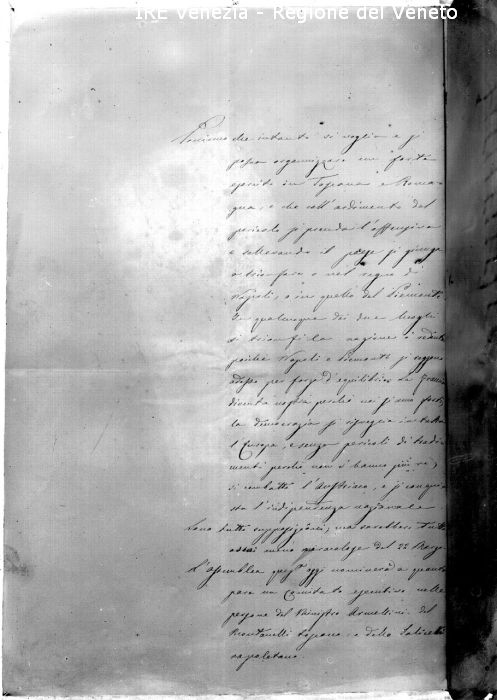 IRE Venezia - Regione del Veneto
Poniamo che intanto si voglia e si
possa organizzare un forte
esercito in Toscana e Roma-
gna, e che coll' ardimento del
pericolo si prenda l'offensiva
e sollevando il paese si giunga
a trionfare o nel regno di
Napoli, o in quello del Piemonte.
In qualunque dei due luoghi
si trionfi la nazione è
poichè Napoli e Piemonte si reggono
adesso per forza d'equilibrio. La Francia
diventa nostra perchè noi siamo forti,
la democrazia si risveglia in tutta
l'Europa, e senza pericoli di tradi-
menti perchè non si hanno più re,
si combatte l'Austriaco, e si conqui-
sta l'indipendenza nazionale
Sono tutte supposizioni, ma sarebbero tutte
assai meno del 22 Marzo.
L'assemblea quest'oggi nominerà a quanto
pare un Comitato esecutivo nelle
persone del Ministro Armellini, del
Montanelli toscano, e dello Saliceti
napoletano.